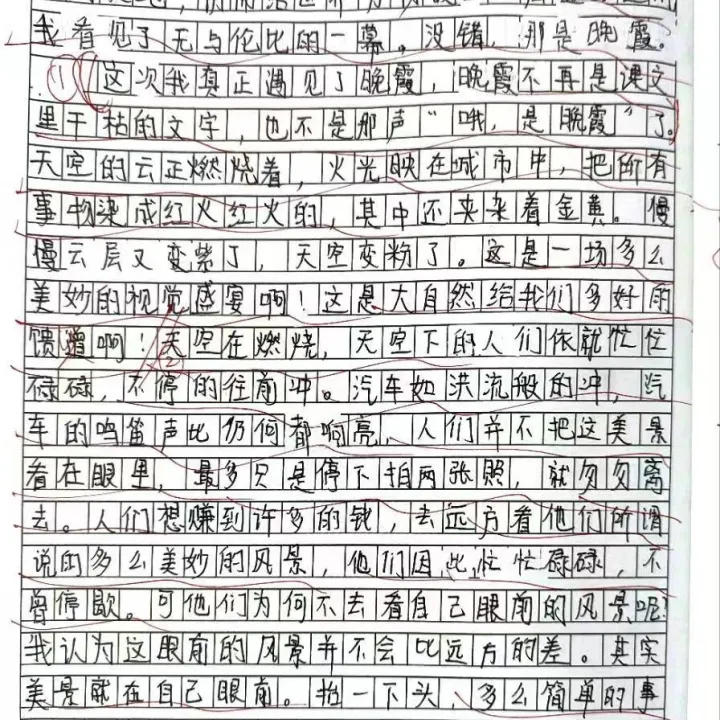 我看见了无与伦比的一幕。没错,那是晚霞。
①这次我真正遇见了晚霞,晚霞不再是课文
里干枯的文字,也不是那声“哦,是晚霞”了。
天空的云正燃烧着,火光映在城市中,把所有
事物染成红火红火的,其中还夹杂着金黄。慢
慢云层又变紫了,天空变粉了。这是一场多么
美妙的视觉盛宴啊!这是大自然给我们多好的
馈赠啊!②天空在燃烧,天空下的人们依就忙忙
碌碌,不停的往前冲。汽车如洪流般的冲,汽
车的鸣笛声比仍何都响亮,人们并不把这美景
看在眼里,最多只是停下拍两张照,就匆匆离
去。人们想赚到许多的钱,去远方看他们所谓
说的多么美妙的风景,他们因此忙忙碌碌,不
曾停歇。可他们为何不去看自己眼前的风景呢?
我认为这眼前的风景并不会比远方的差。其实
美景就在自己眼前。抬一下头,多么简单的事